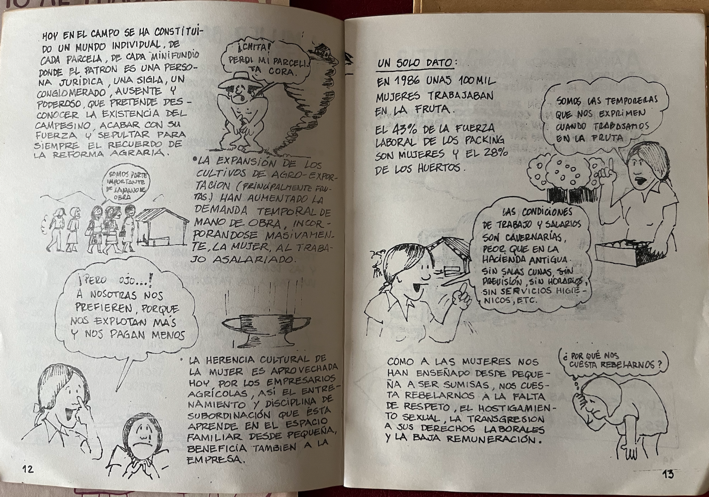 HOY EN EL CAMPO SE HA CONSTITUI-
DO UN MUNDO INDIVIDUAL, DE
CADA PARCELA, DE CADA MINIFUNDIO
DONDE EL PATRON ES UNA PERSO-
NA JURÍDICA, UNA SIGLA, UN
CONGLOMERADO, AUSENTE Y
PODEROSO, QUE PRETENDE DES-
CONOCER LA EXISTENCIA DEL
CAMPESINO, ACABAR CON SU
FUERZA Y SEPULTAR PARA
SIEMPRE EL RECUERDO DE
LA REFORMA AGRARIA.
¡CHITA!
PERDI MI PARCELI-
TA CORA.
SOMOS PARTE
IMPORTANTE
DE LA MANO DE
OBRA
• LA EXPANSIÓN DE LOS
CULTIVOS DE AGRO-EXPOR-
TACION (PRINCIPALMENTE FRU-
TAS) HAN AUMENTADO LA
DEMANDA TEMPORAL DE
MANO DE OBRA, INCOR-
PORANDOSE MASIVAMEN-
TE, LA MUJER, AL TRABA-
JO ASALARIADO.
¡PERO OJO...!
A NOSOTRAS NOS
PREFIEREN, PORQUE
NOS EXPLOTAN MÁS
Y NOS PAGAN MENOS
• LA HERENCIA CULTURAL DE
LA MUJER ES APROVECHADA
HOY, POR LOS EMPRESARIOS
AGRÍCOLAS, ASÍ EL ENTRE-
NAMIENTO Y DISCIPLINA DE
SUBORDINACIÓN QUE ÉSTA
APRENDE EN EL ESPACIO
FAMILIAR DESDE PEQUEÑA,
BENEFICIA TAMBIEN A LA
EMPRESA.
12
UN SOLO DATO:
EN 1986 UNAS 100 MIL
MUJERES TRABAJABAN
EN LA FRUTA.
EL 43% DE LA FUERZA
LABORAL DE LOS PACKING
SON MUJERES Y EL 28%
DE LOS HUERTOS.
SOMOS LAS TEMPORERAS
QUE NOS EXPRIMEN
CUANDO TRABAJAMOS
EN LA FRUTA
LAS CONDICIONES
DE TRABAJO Y SALARIOS
SON CAVERNARIAS,
PEOR QUE EN LA
HACIENDA ANTIGUA
SIN SALAS CUNAS, SIN
PREVISIÓN, SIN HORARIOS,
SIN SERVICIOS HIGIE-
NICOS, ETC.
COMO A LAS MUJERES NOS
HAN ENSEÑADO DESDE PEQUE-
ÑA A SER SUMISAS, NOS CUES-
TA REBELARNOS A LA FALTA
DE RESPETO, EL HOSTIGAMIEN-
TO SEXUAL, LA TRANSGRESION
A SUS DERECHOS LABORALES
Y LA BAJA REMUNERACIÓN.
¿POR QUÉ NOS
CUESTA REBELARNOS?
13